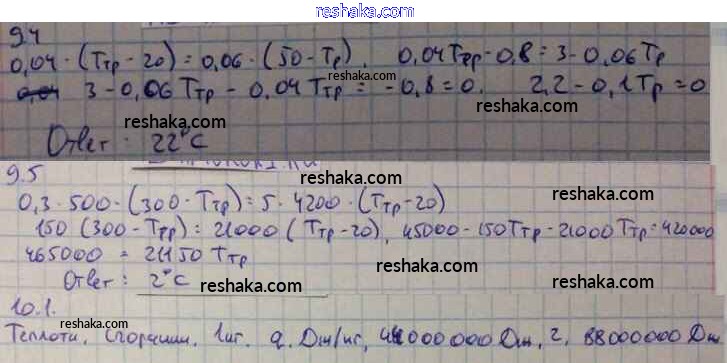 reshaka.com
9.4
0,04 · (Tтр - 20) = 0,06 · (50 - Tр). 0,04Tтр - 0,8 = 3 - 0,06Tр
3 - 0,06 Tтр - 0,04 Tтр = -0,8 = 0. 2,2 - 0,1Tр = 0
reshaka.com
reshaka.com
Ответ: 22°C
reshaka.com
9.5
reshaka.com
0,3 · 500 · (300 - Tтр) = 5 · 4200 · (Tтр - 20)
150 (300 - Tтр) = 21000 (Tтр - 20), 45000 - 150Tтр - 21000 Tтр = 420000
465000 = 21150 Tтр
reshaka.com
reshaka.com
Ответ: 2°C
reshaka.com
10.1.
reshaka.com
Теплоты. Сгорании. 1кг. q. Дж/кг, 44000000 Дж, 2, 88000000 Дж
reshaka.com